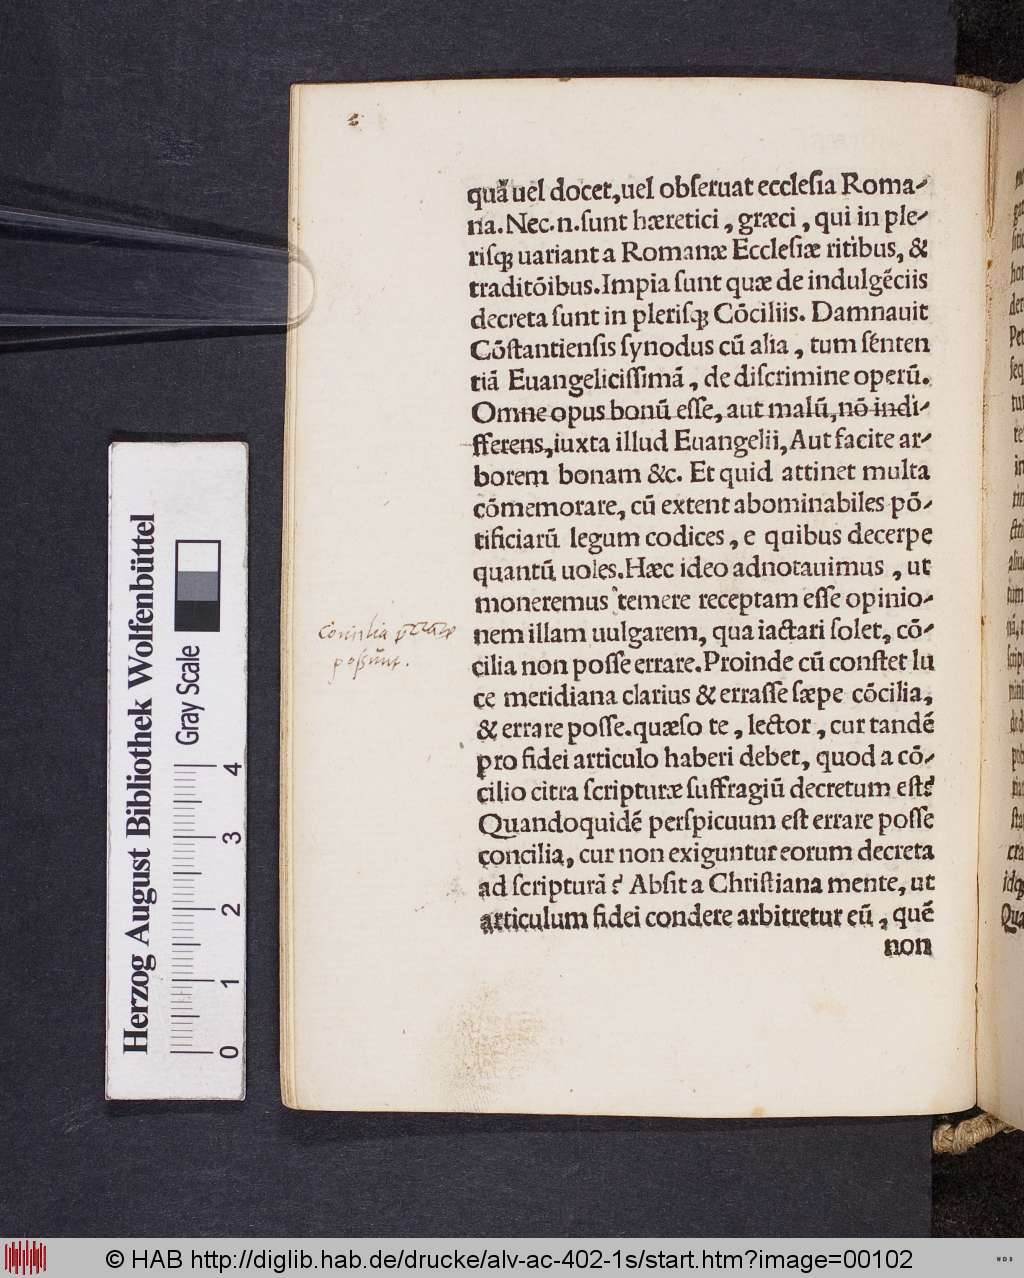 quã uel docet,uel obſeruat eccleſia Roma-
na. Nec.n.ſunt hæretici, græci, qui in ple-
riſq; uariant a Romanæ Eccleſiæ ritibus, &
traditõibus. Impia ſunt quæ de indulgẽciis
decreta ſunt in pleriſq; Cõciliis. Damnauit
Cõſtantienſis ſynodus cũ alia, tum ſenten
tiã Euangeliciſſimã, de diſcrimine operũ.
Omne opus bonũ eſſe, aut malũ, nõ indi-
fferens, iuxta illud Euangelii, Aut facite ar-
borem bonam &c. Et quid attinet multa
cõmemorare, cũ extent abominabiles põ-
tificiarũ legum codices, e quibus decerpe
quantũ uoles. Hæc ideo adnotauimus, ut
moneremus temere receptam eſſe opinio-
nem illam uulgarem, qua iactari ſolet, cõ-
cilia non poſſe errare. Proinde cũ conſtet lu
ce meridiana clarius & erraſſe ſæpe cõcilia,
& errare poſſe. quæſo te, lector, cur tandẽ
pro fidei articulo haberi debet, quod a cõ-
cilio citra ſcripturæ ſuffragiũ decretum eſt?
Quandoquidẽ perſpicuum eſt errare poſſe
concilia, cur non exiguntur eorum decreta
ad ſcripturã? Abſit a Chriſtiana mente, ut
articulum fidei condere arbitretur eũ, quẽ
non
Concilia
poſſunt.
Herzog August Bibliothek Wolfenbüttel
Gray Scale
0 1 2 3 4
© HAB http://diglib.hab.de/drucke/alv-ac-402-1s/start.htm?image=00102